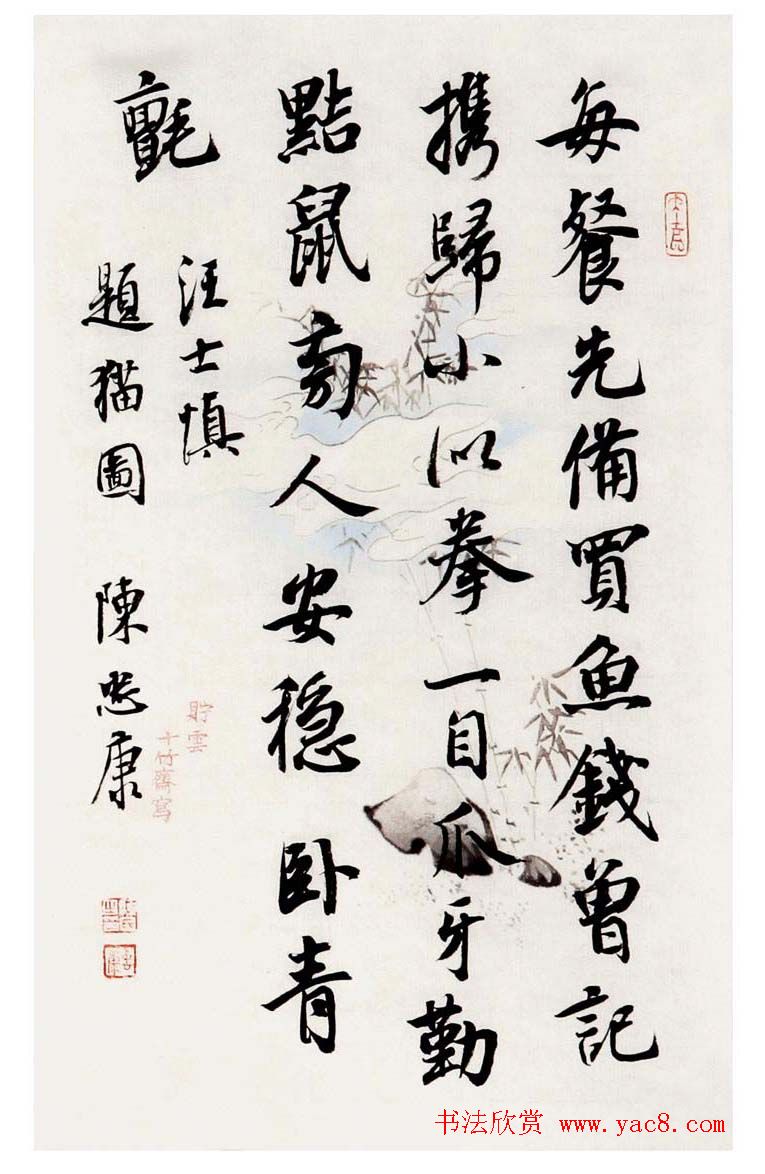 每餐先備買魚錢曾記
携歸小似拳一自爪牙勤
黠鼠旁人安穩卧青
氈
汪士慎
題猫圖 陳忠康
貯雲
十竹齋寫
书法欣赏 www.yac8.com